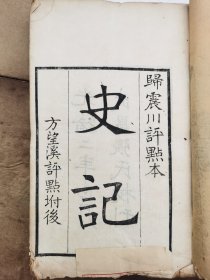 歸震川評點本
史記
方望溪評點坿後